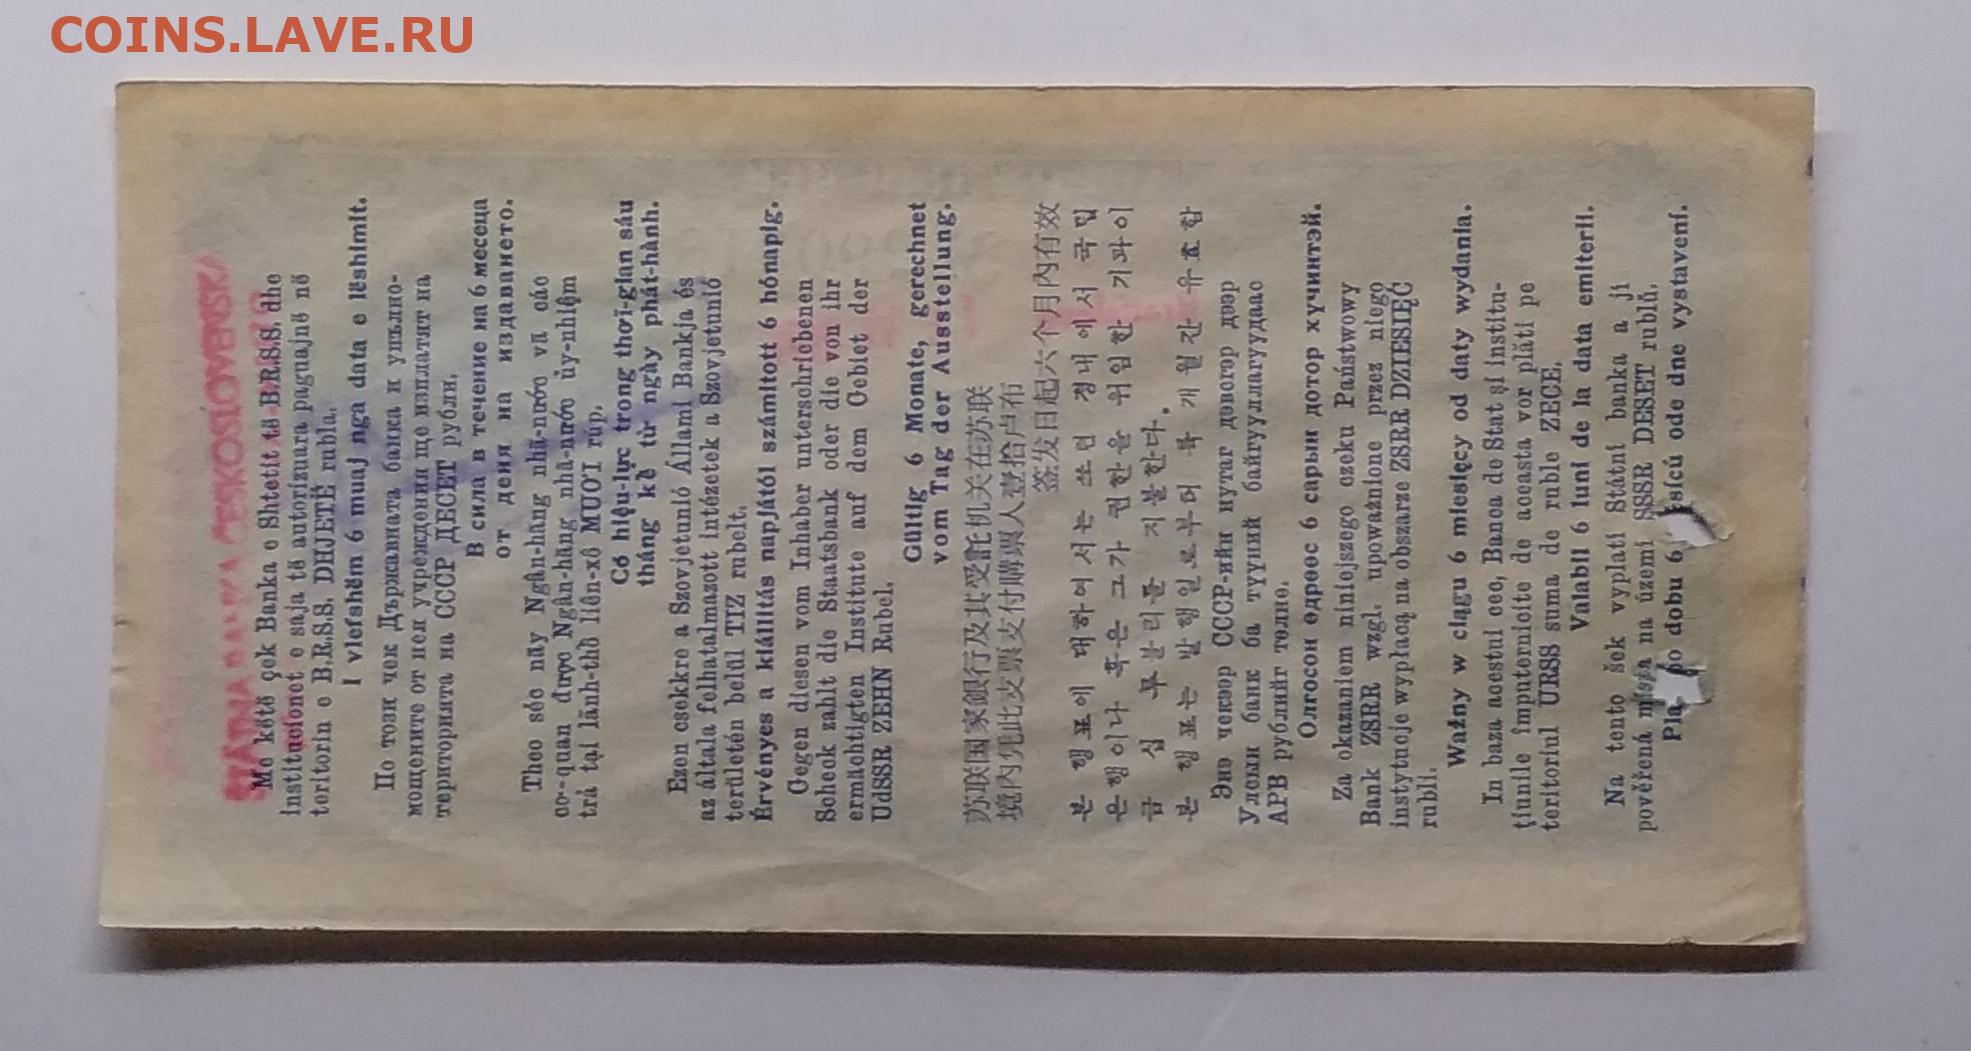 COINS.LAVE.RU
STÁTNA BANKA ČESKOSLOVENSKÁ
Me këtë çek Banka e Shtetit të B.R.S.S. dhe
institucionet e saja të autorizuara paguajnë në
teritorin e B.R.S.S. DHJETË rubla.
I vlefshëm 6 muaj nga data e lëshimit.
По този чек Държавната банка и упълно-
мощените от нея учреждения ще изплатят на
територията на СССР ДЕСЕТ рубли.
В сила в течение на 6 месеца
от деня на издаването.
Theo séc nầy Ngân-hàng nhà-nước và các
cơ-quan được Ngân-hàng nhà-nước ủy-nhiệm
trả tại lãnh-thổ liên-xô MƯỜI rúp.
Có hiệu-lực trong thời-gian sáu
tháng kể từ ngày phát-hành.
Ezen csekkre a Szovjetunió Állami Bankja és
az általa felhatalmazott intézetek a Szovjetunió
területén belül TIZ rubelt.
Érvényes a kiállítás napjától számitott 6 hónapig.
Gegen diesen vom Inhaber unterschriebenen
Scheck zahlt die Staatsbank oder die von ihr
ermächtigten Institute auf dem Gebiet der
UdSSR ZEHN Rubel.
Gültig 6 Monate, gerechnet
vom Tag der Ausstellung.
苏联国家銀行及其受託机关在苏联
境內凭此支票支付購票人壹拾卢布
签发日起六个月內有效
본 행표에 대하여서는 쏘련 경내에서 국립
은행이나 혹은 그가 권한을 위임한 기과이
금 십 루블리를 지불한다.
본 행표는 발행일로부터 륙 개월간 유효함
Энэ чекээр СССР-ийн нутаг дэвсгэр дээр
Улсын банк ба түүний байгууллагуудаас
АРВ рублийг төлнө.
Олгосон өдрөөс 6 сарын дотор хүчинтэй.
Za okazaniem niniejszego czeku Państwowy
Bank ZSRR wzgl. upoważnione przez niego
instytucje wypłacą na obszarze ZSRR DZIESIĘĆ
rubli.
Ważny w ciągu 6 miesięcy od daty wydania.
In baza acestui cec, Banca de Stat și institu-
țiunile împuternicite de aceasta vor plăti pe
teritoriul URSS suma de ruble ZECE.
Valabil 6 luni de la data emiterii.
Na tento šek vyplatí Státní banka a jí
pověřená místa na území SSSR DESET rublů.
po dobu 6 ode dne vystavení.